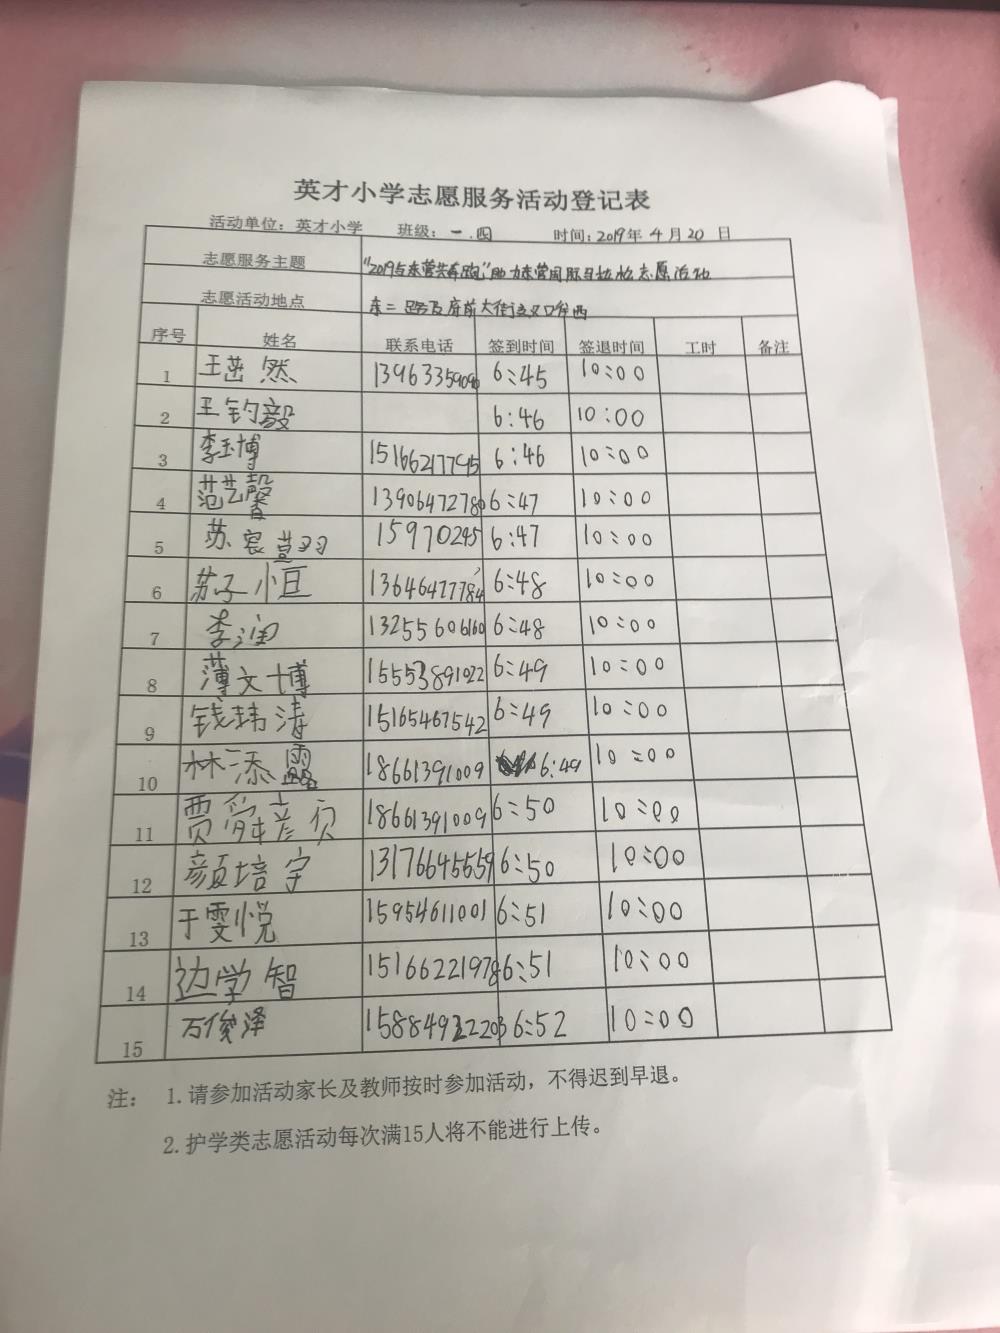 英才小学志愿服务活动登记表
活动单位：英才小学 班级：一.四 时间：2019年4月20日
志愿服务主题 “2019与东营共奔跑”助力东营国际马拉松志愿活动
志愿活动地点 东二路及府前大街交叉口步西
序号 姓名 联系电话 签到时间 签退时间 工时 备注
1 王茁然 1396335909 6:45 10:00
2 王钧毅 6:46 10:00
3 李玉博 15166217795 6:46 10:00
4 范艺馨 13906472780 6:47 10:00
5 苏宸萱 15970245 6:47 10:00
6 苏子小豆 13646477784 6:48 10:00
7 李润 13255606160 6:48 10:00
8 薄文博 15553891022 6:49 10:00
9 钱玮涛 15165467542 6:49 10:00
10 林添露 18661391009 6:49 10:00
11 贾舜彦贝 18661391009 6:50 10:00
12 颜培宇 13176645559 6:50 10:00
13 于雯悦 15954611001 6:51 10:00
14 边学智 15166221978 6:51 10:00
15 万俊泽 15884922203 6:52 10:00
注： 1.请参加活动家长及教师按时参加活动，不得迟到早退。
2.护学类志愿活动每次满15人将不能进行上传。